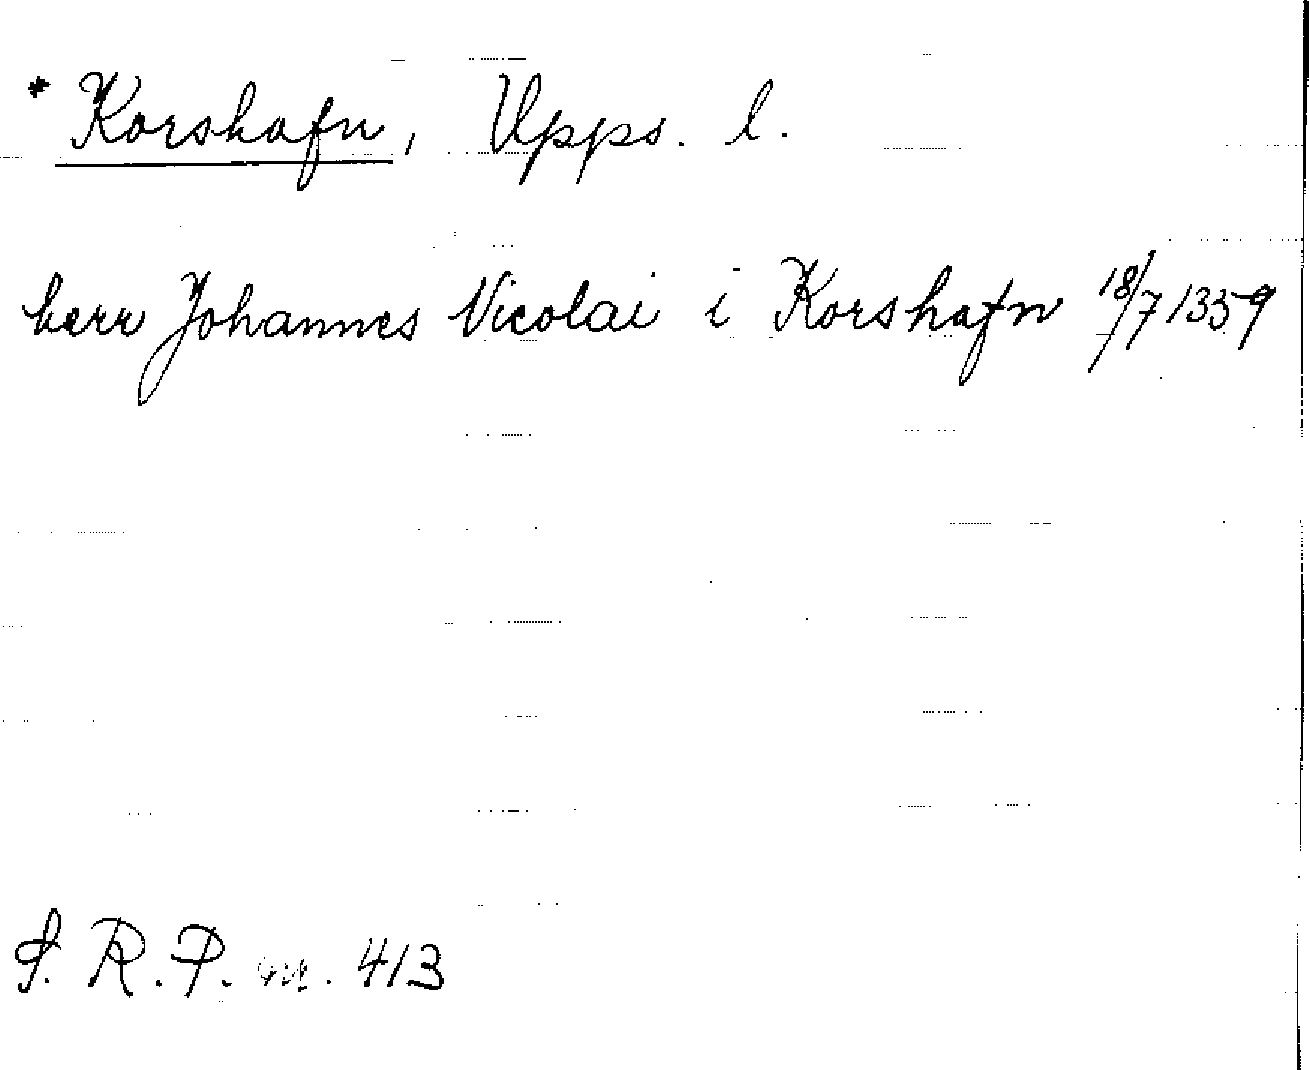 * Korshafn, Upps. l.
herr Johannes Nicolai i Korshafn 18/7 1359
S. R. P. nr. 413